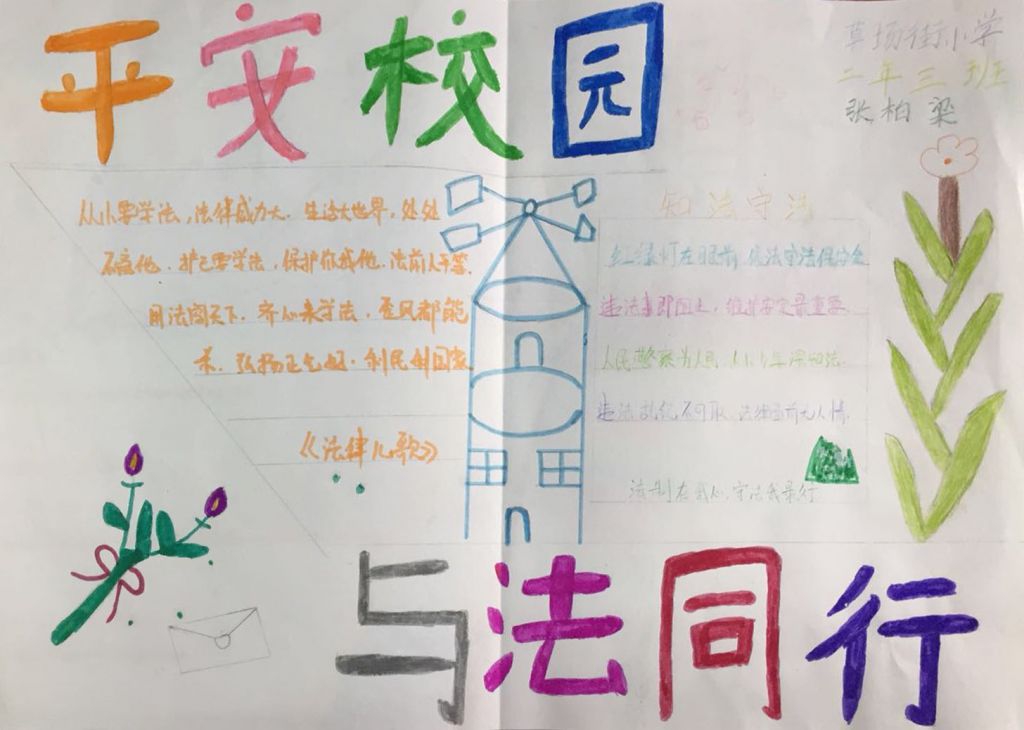 平安校园
草场街小学
二年三班
张柏梁
从小要学法,法律威力大.生活大世界,处处
离他.护己要学法,保护你我他.法前人平等.
用法闯天下.齐心来学法,歪风都能
杀.弘扬正气妞.利民利国家
《法律儿歌》
知法守法
红绿灯在眼前 依法守法保安全
违法事即阻止,维护安定最重要.
人民警察为人民.从小少年深知法.
违法乱纪不可取.法律面前无人情.
法制在我心,守法我最行
与法同行